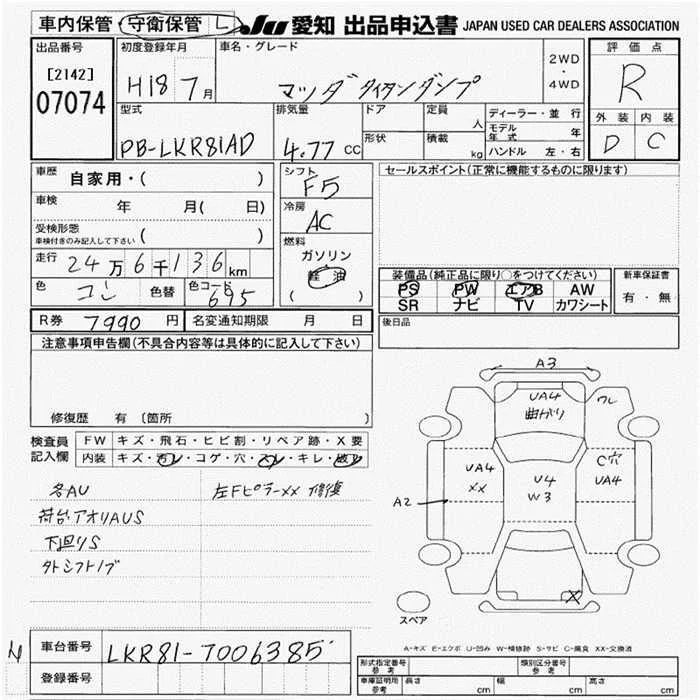 車内保管・守衛保管 L JU 愛知 出品申込書 JAPAN USED CAR DEALERS ASSOCIATION
出品番号 初度登録年月 車名・グレード 評価点
[2142] H18 7月 マツダ タイタンダンプ 2WD・4WD R
07074
型式 排気量 ドア 定員 人 ディーラー・並行 外装 内装
PB-LKR81AD 4.77 CC 形状 積載 kg モデル年式 年 D C
ハンドル 左・右
車歴 自家用・( ) シフト F5 セールスポイント(正常に機能するものに限ります)
車検 年 月( 日) 冷房 AC
受検形態 ( )
車検付きのみ記入して下さい
燃料 ガソリン
走行 24万6千136km 軽油
( )
装備品(純正品に限り○をつけてください) 新車保証書
色 コン 色替 色コード 695 PS PW エアB AW 有・無
SR ナビ TV カワシート
R券 7990円 名変通知期限 月 日 後日品
注意事項申告欄(不具合内容等は具体的に記入して下さい)
修復歴 有〔箇所 〕
検査員記入欄 FW キズ・飛石・ヒビ割・リペア跡・X要
内装 キズ・汚レ・コゲ・穴・スレ・キレ・破レ
各AU 左Fピラーxx 修復
荷台アオリAUS
下回りS
タトシフトノブ
A3
UA4
曲がり
ワレ
UA4
xx
U4
W3
C穴
UA4
A2
X
スペア
A-キズ E-エクボ U-凹み W-補修跡 S-サビ C-腐食 XX-交換済
車台番号 LKR81-7006385
登録番号
形式指定番号 参考 類別区分番号 参考
車庫証明用 参考 長さ cm 幅 cm 高さ cm